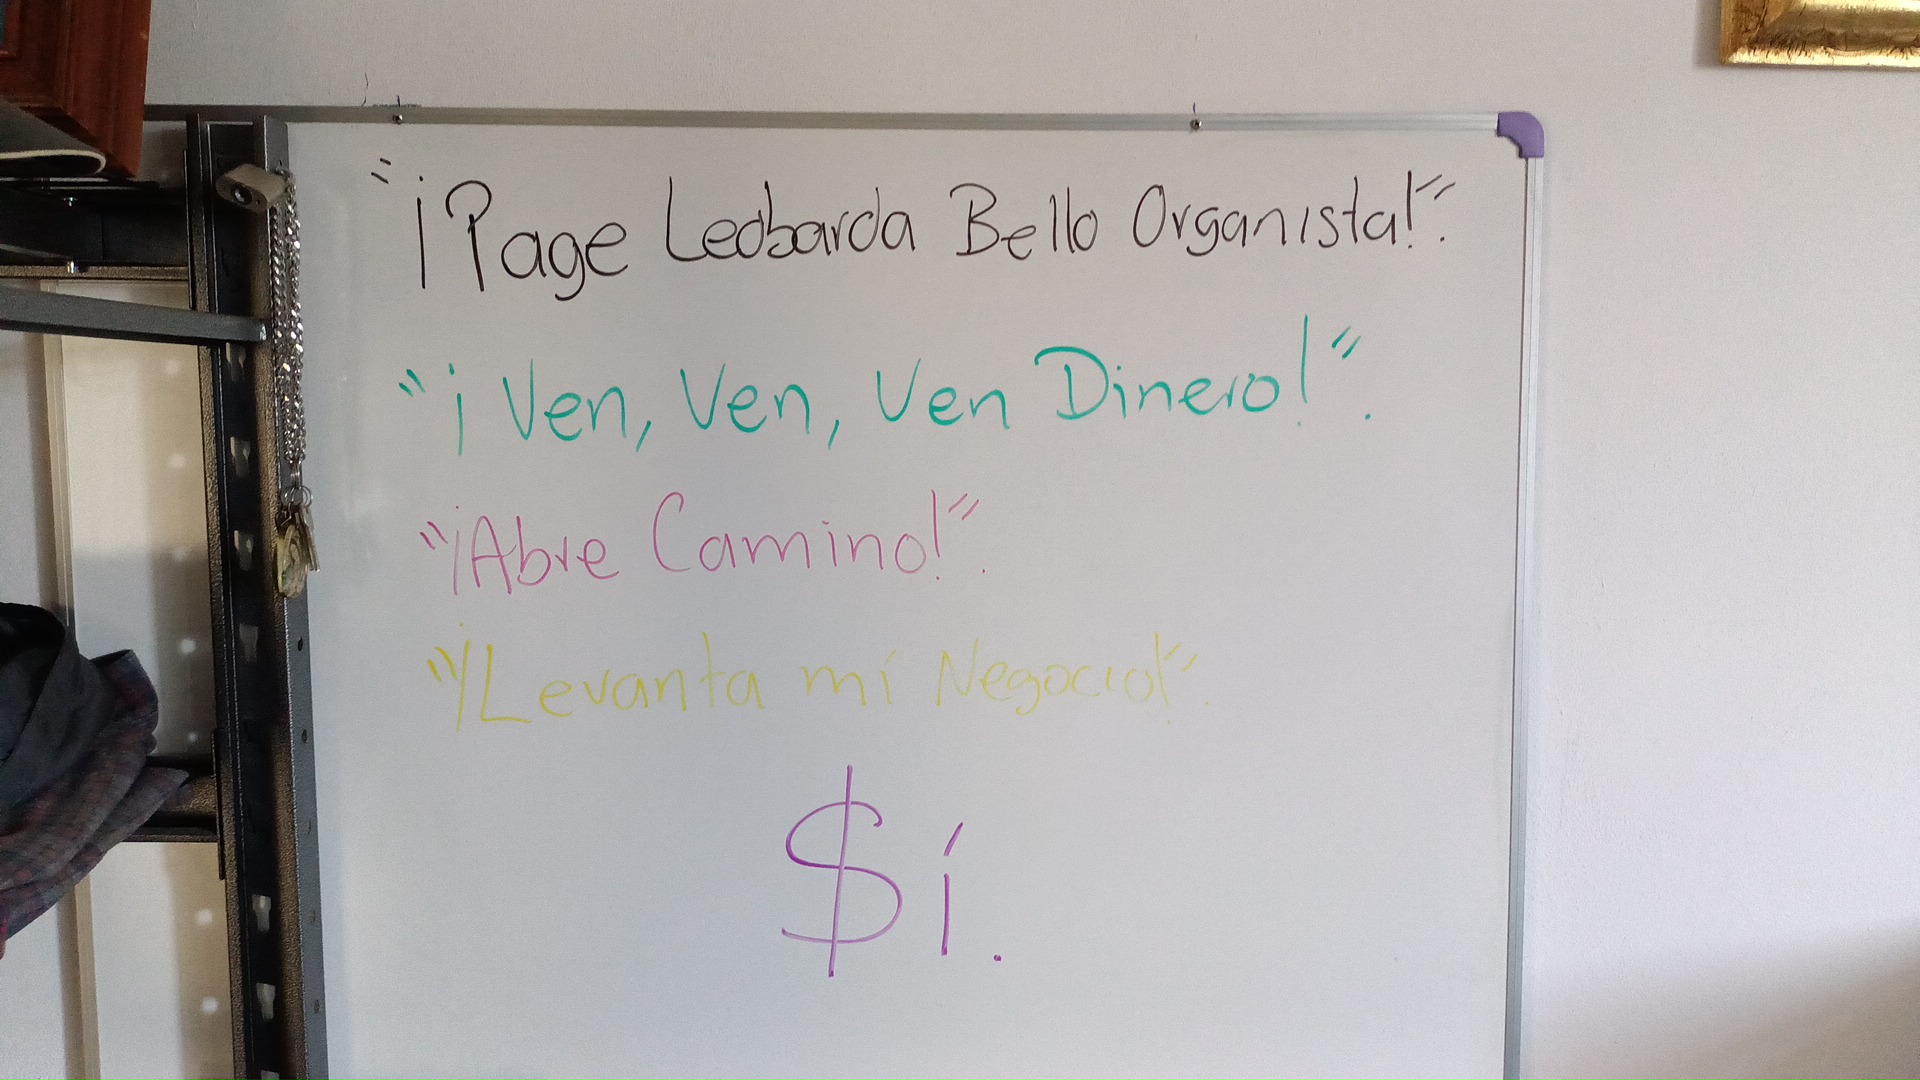 "¡Page Leobarda Bello Organista!".
"¡Ven, Ven, Ven Dinero!".
"¡Abre Camino!".
"¡Levanta mí Negocio!".
$í.